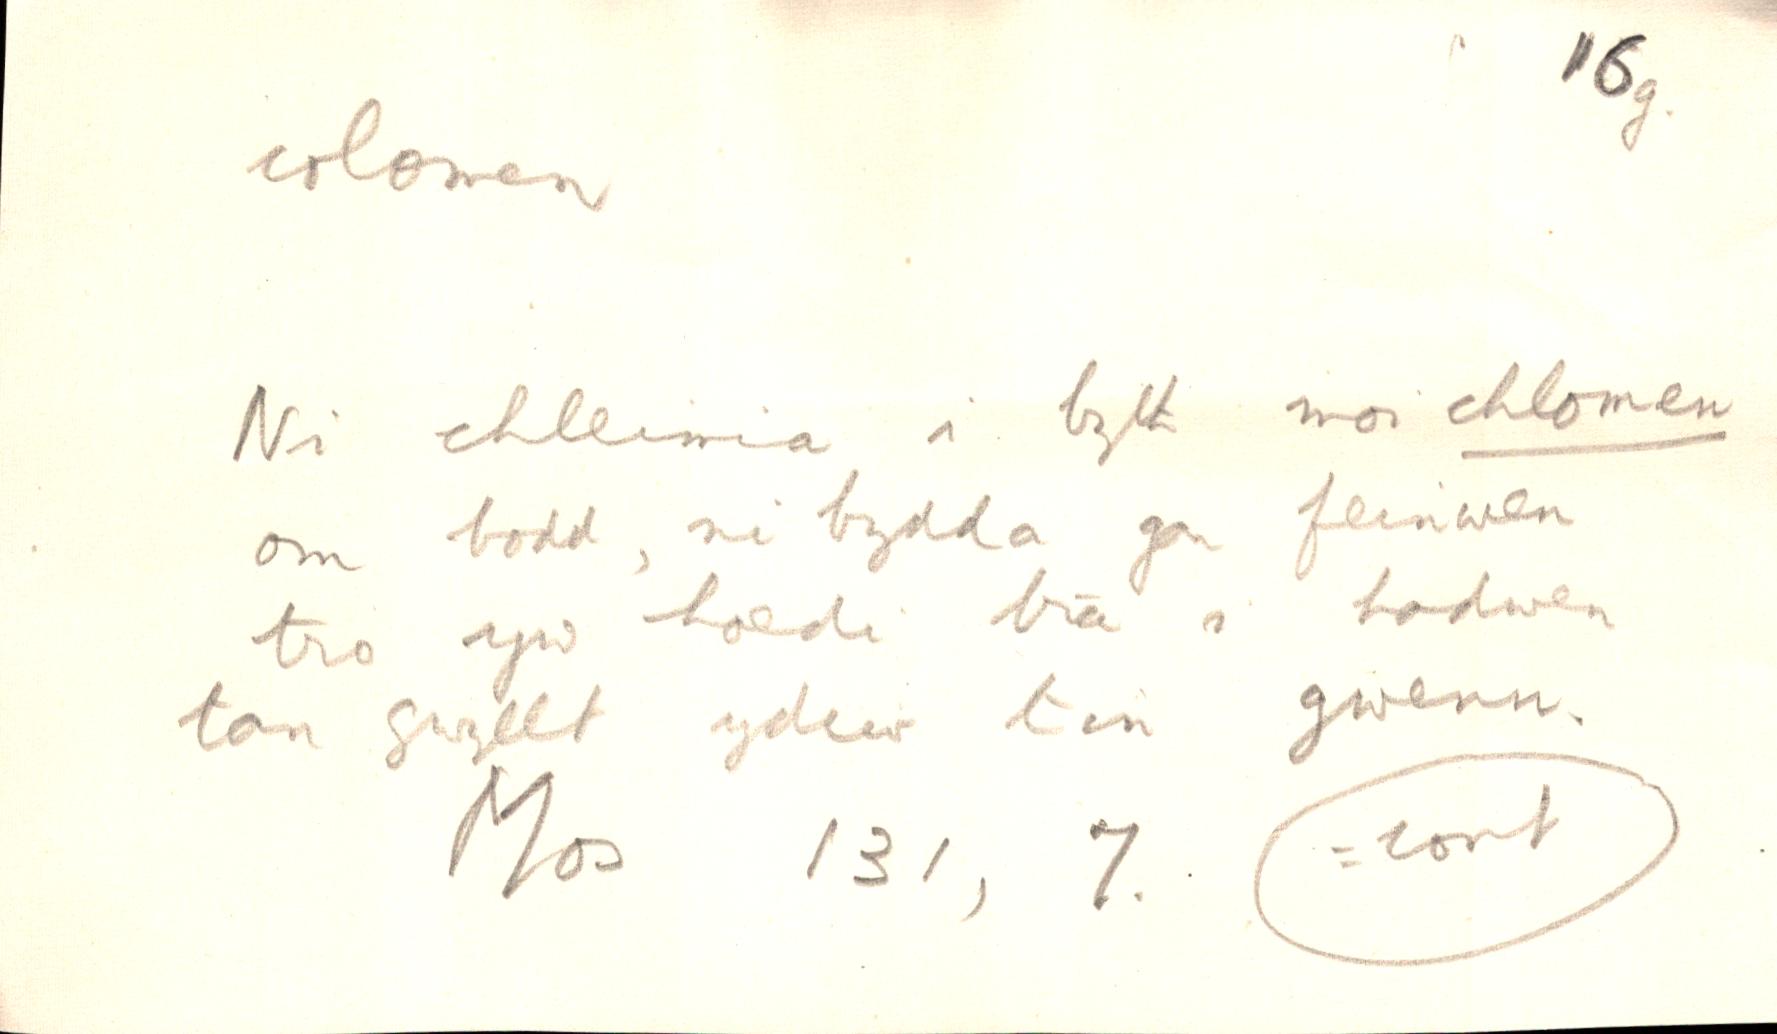 16g.
colomen
Ni chlleimia i byth moi chlomen
om bodd, ni bydda gan feinwen
tro yw hoedi bia i hadwen
tan gwyllt ydiw tin gwenn.
Mos 131, 7. =cont